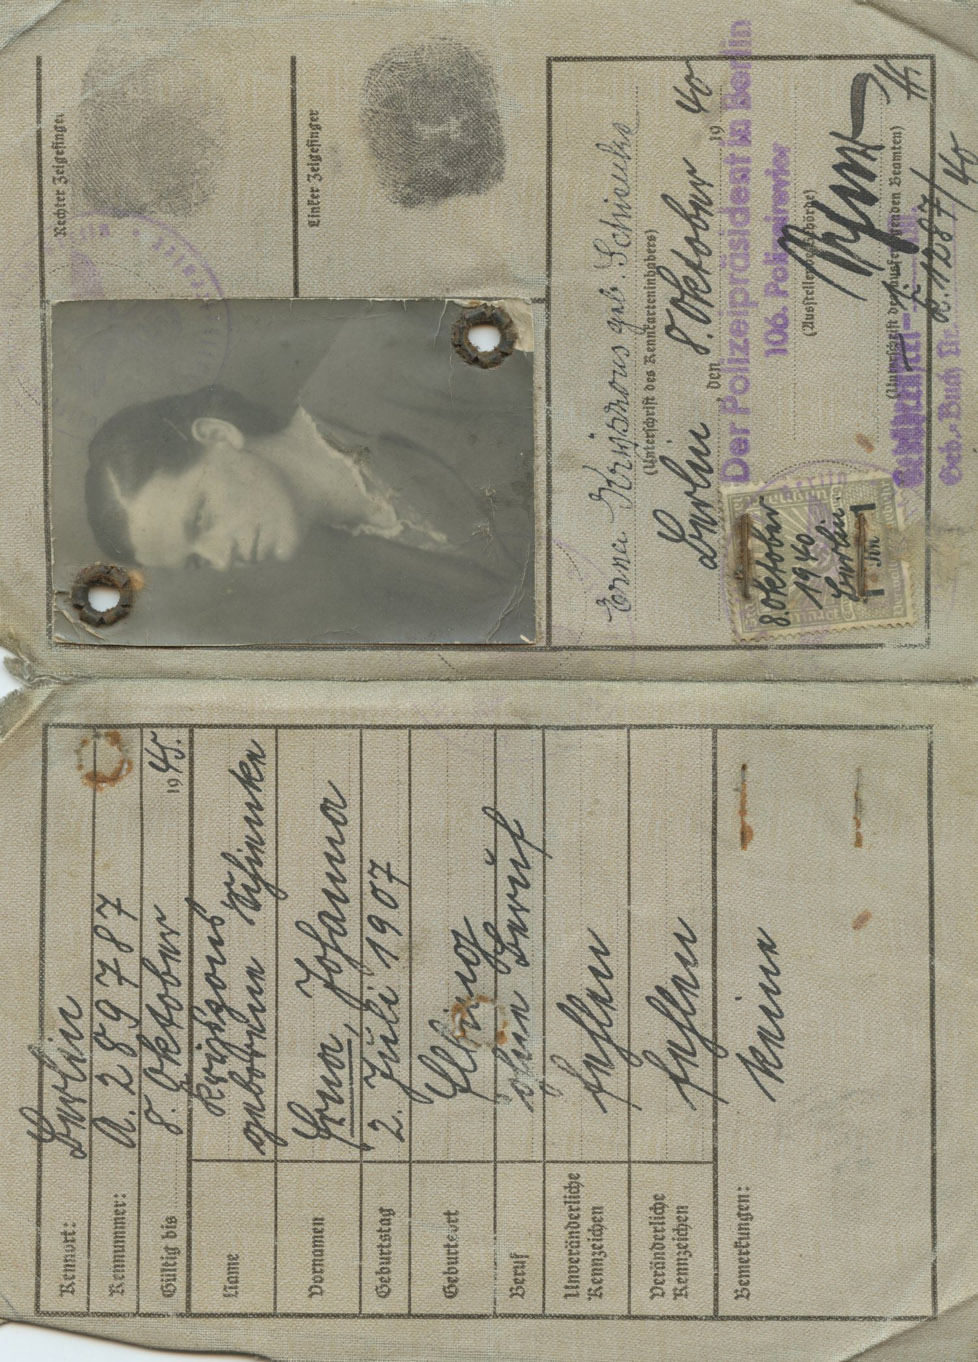 Kennort: Berlin
Kennummer: A. 289787
Gültig bis 8. Oktober 1945.
Name
geborene Schienke
Vornamen Erna, Johanna
Geburtstag 2. Juli 1907
Geburtsort Elbing
Beruf ohne Beruf
Unveränderliche
Kennzeichen fehlen
Veränderliche
Kennzeichen fehlen
Bemerkungen: keine
Rechter Zeigefinger
Linker Zeigefinger
Erna geb. Schienke
(Unterschrift des Kennkarteninhabers)
Berlin, den 8. Oktober 1940
Der Polizeipräsident in Berlin
106. Polizeirevier
(Ausstellende Behörde)
(Unterschrift des ausfertigenden Beamten)
Geb.-Buch Nr.
8. Oktober
1940
Berlin